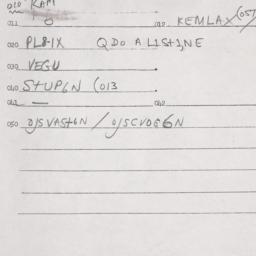 010 RAM
011 010 KEMLAX (05T)
020 PL8-1X QDO A L1ST1NE
030 VEGU
040 STUP6N (013
042 — 040
050 DJSVAST6N / DJSCVOE6N